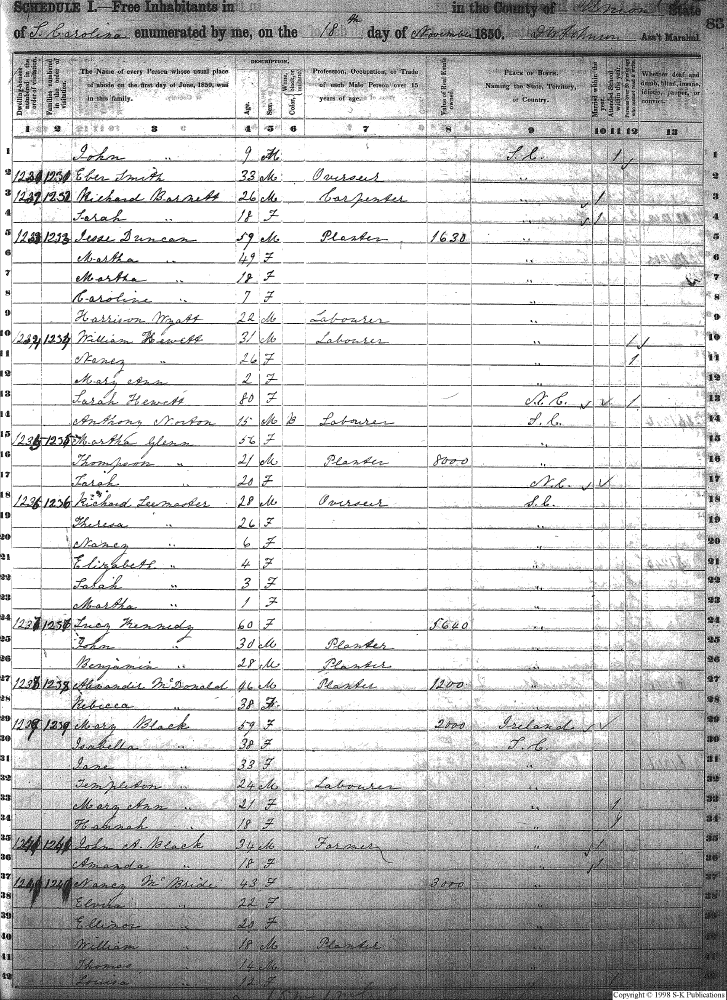 SCHEDULE I.—Free Inhabitants in in the County of Union State
of S. Carolina enumerated by me, on the 18th day of November 1850. Ass't Marshal 83
DESCRIPTION.
Dwelling-houses numbered in the order of visitation. Families numbered in the order of visitation. The Name of every Person whose usual place of abode on the first day of June, 1850, was in this family. Age. Sex. Color, Profession, Occupation, or Trade of each Male Person over 15 years of age. Value of Real Estate owned. PLACE OF BIRTH. Naming the State, Territory, or Country. Married within the year. Attended School within the year. Whether deaf and dumb, blind, insane, idiotic, pauper, or convict.
1 2 3 4 5 6 7 8 9 10 11 12 13
1 John " 9 M S.C. 1 1
2 Eber Smith 33 M Overseer " 2
3 1232 Richard Barnett 26 M Carpenter " 1 3
4 Sarah " 18 F " 1 4
5 1233 1233 Jesse Duncan 59 M Planter 1630 " 5
6 Martha " 49 F " 6
7 Martha " 18 F " 7
8 Caroline " 7 F " 8
9 Harrison Wyatt 22 M Labourer " 9
10 1234 1234 William Hewett 31 M Labourer " 1 10
11 Nancy " 26 F " 1 11
12 Mary Ann " 2 F " 12
13 Sarah Hewett 80 F N.C. 1 13
14 Anthony Norton 15 M B Labourer S.C. 14
15 1235 1235 Martha Glenn 56 F " 15
16 Thompson " 21 M Planter 8000 " 16
17 Sarah " 20 F N.C. 17
18 1236 1236 Richard Leemaster 28 M Overseer S.C. 18
19 Theresa " 26 F " 19
20 Nancy " 6 F " 20
21 Elizabeth " 4 F " 21
22 Sarah " 3 F " 22
23 Martha " 1 F " 23
24 1237 1237 Lucy Kennedy 60 F 5640 " 24
25 John " 30 M Planter " 25
26 Benjamin " 28 M Planter " 26
27 1238 1238 Alexander McDonald 46 M Planter 1200 " 27
28 Rebecca " 38 F " 28
29 1239 1239 Mary Black 59 F 2000 Ireland 29
30 Isabella " 38 F S.C. 30
31 Jane " 33 F " 31
32 Templeton " 24 M Labourer " 32
33 Mary Ann " 21 F " 1 33
34 Hannah " 18 F " 1 34
35 John A. Black 34 M Farmer " 1 35
36 Amanda " 18 F " 1 36
37 Nancy McBride 43 F 3000 " 37
38 Elvira " 22 F " 38
39 Ellinor " 20 F " 39
40 William " 18 M Planter " 40
41 Thomas " 14 M " 41
42 Louisa " 12 F " 42
Copyright © 1998 S-K Publications